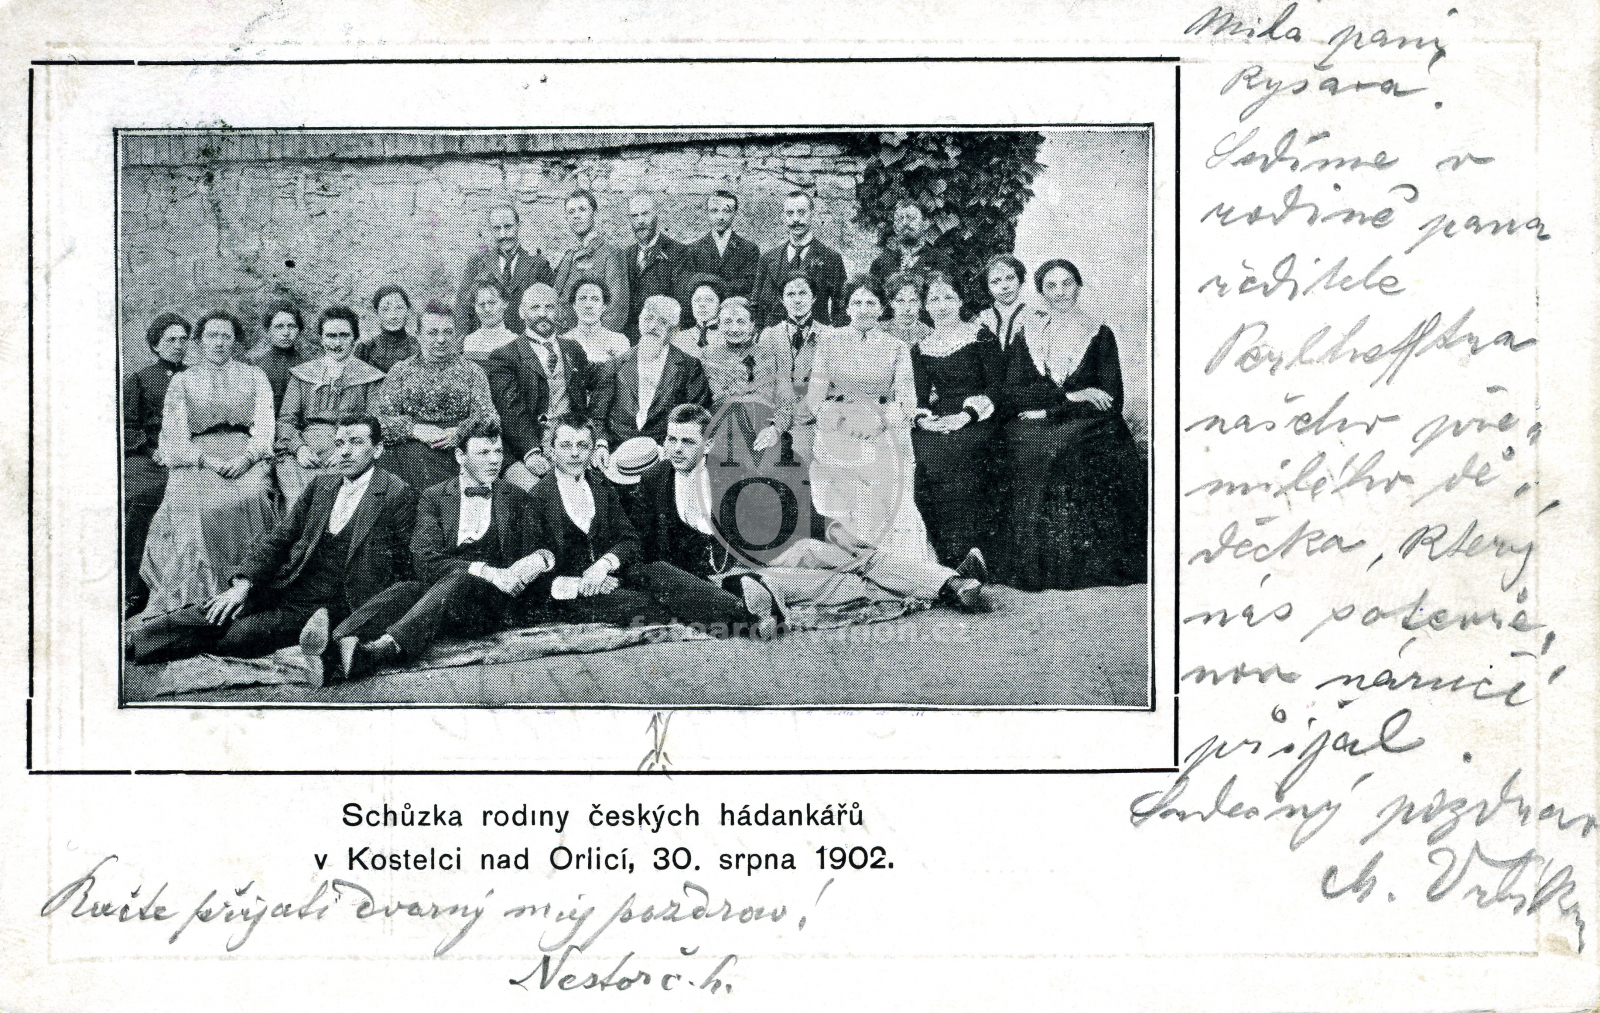 Milá paní
Ryšavá.
Sedíme v
rodině pana
ředitele
našeho pře-
milého dě-
dečka, který
nás s otevře-
nou náručí
přijal.
Srdečný pozdrav
M O
fotoarchivmon.cz
Schůzka rodiny českých hádankářů
v Kostelci nad Orlicí, 30. srpna 1902.
Račte přijati dvorný můj pozdrav!
Nestor č. h.